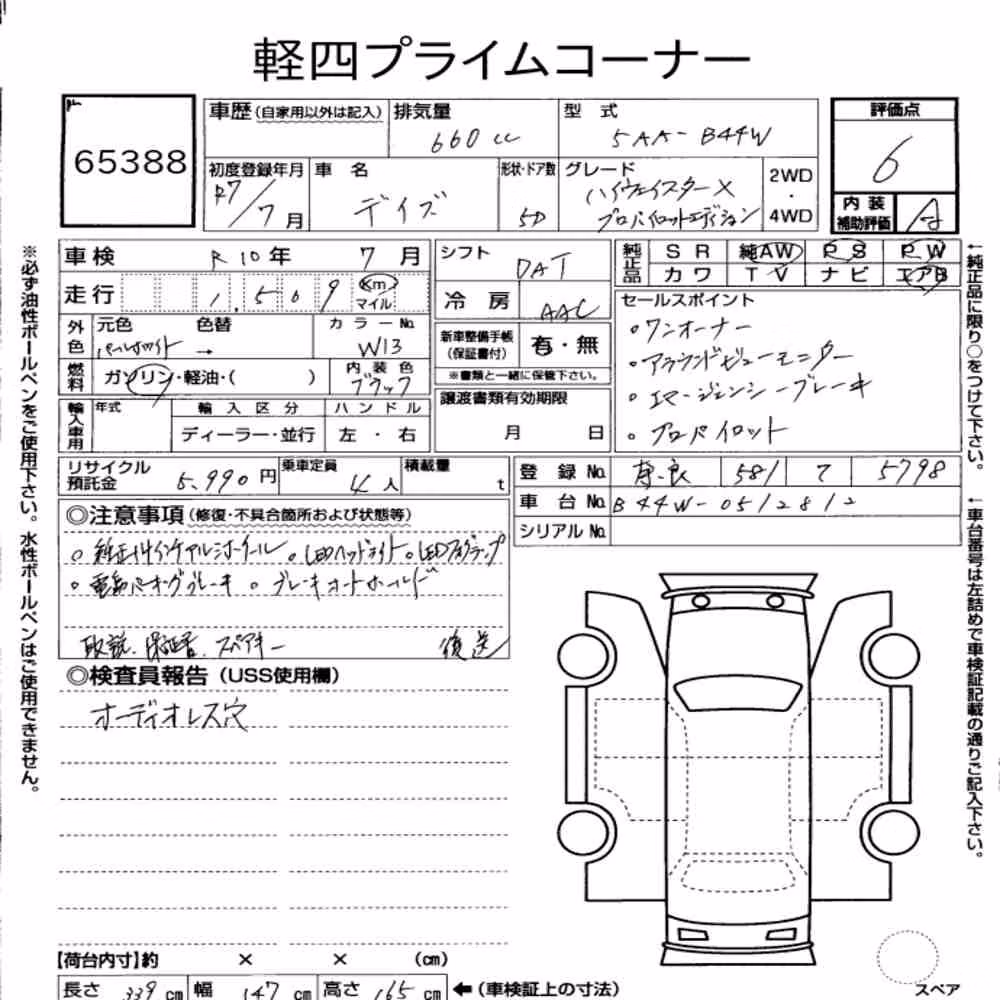 軽四プライムコーナー
65388
車歴(自家用以外は記入) 排気量 660 cc 型式 5AA-B44W
評価点 6
内装補助評価 A
初度登録年月 R7/7月 車名 デイズ 形状・ドア数 5D グレード ハイウェイスターX プロパイロットエディション 2WD・4WD
車検 R10年 7月
走行 1,509 Km マイル
シフト DAT
冷房 AAC
純正品 SR 純AW PS PW
カワ TV ナビ エアB
外色 元色 色替 カラーNo.
パールホワイト → W13
燃料 ガソリン・軽油・( ) 内装色 ブラック
新車整備手帳(保証書付) 有・無
※書類と一緒に保管下さい。
譲渡書類有効期限
月 日
輸入車用 年式 輸入区分 ハンドル
ディーラー・並行 左・右
セールスポイント
・ワンオーナー
・アラウンドビューモニター
・エマージェンシーブレーキ
・プロパイロット
リサイクル預託金 5,990円 乗車定員 4人 積載量 t
登録No. 奈良 581 7798
車台No. B44W-0512812
シリアルNo.
◎注意事項(修復・不具合箇所および状態等)
○純正14インチアルミホイール ○LEDヘッドライト ○LEDフォグランプ
○電動パーキングブレーキ ○ブレーキオートホールド
取説、保証書、スペアキー 後送
◎検査員報告(USS使用欄)
オーディオレス穴
【荷台内寸】約 × × (cm)
長さ 339 cm 幅 147 cm 高さ 165 cm ←(車検証上の寸法)
スペア
※必ず油性ボールペンをご使用下さい。水性ボールペンはご使用できません。
←純正品に限り○をつけて下さい。
←車台番号は左詰めで車検証記載の通りご記入下さい。